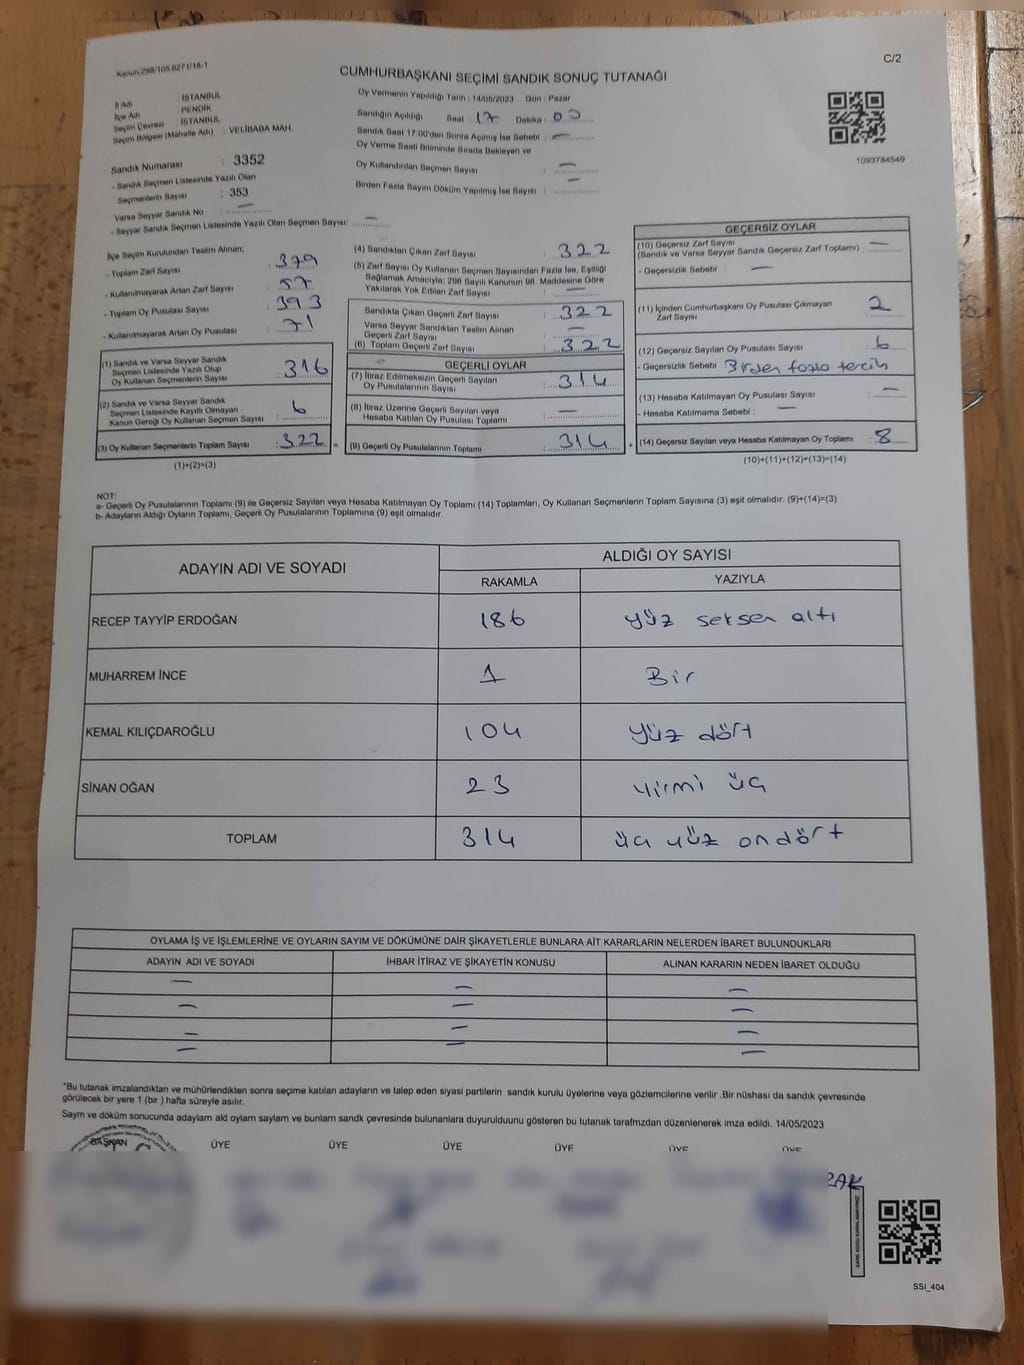 Kanun.298/105,6271/18-1
C/2
CUMHURBAŞKANI SEÇİMİ SANDIK SONUÇ TUTANAĞI
İl Adı : İSTANBUL
İlçe Adı : PENDİK
Seçim Çevresi : İSTANBUL
Seçim Bölgesi (Mahalle Adı) : VELİBABA MAH.
Sandık Numarası : 3352
- Sandık Seçmen Listesinde Yazılı Olan
Seçmenlerin Sayısı : 353
Varsa Seyyar Sandık No : —
- Seyyar Sandık Seçmen Listesinde Yazılı Olan Seçmen Sayısı: —
Oy Vermenin Yapıldığı Tarih : 14/05/2023 Gün : Pazar
Sandığın Açıldığı Saat : 17 Dakika : 03
Sandık Saat 17:00'den Sonra Açılmış İse Sebebi : —
Oy Verme Saati Bitiminde Sırada Bekleyen ve
Oy Kullandırılan Seçmen Sayısı : —
Birden Fazla Sayım Döküm Yapılmış İse Sayısı : —
1093784549
İlçe Seçim Kurulundan Teslim Alınan;
- Toplam Zarf Sayısı : 379
- Kullanılmayarak Artan Zarf Sayısı : 57
- Toplam Oy Pusulası Sayısı : 393
- Kullanılmayarak Artan Oy Pusulası : 71
(1) Sandık ve Varsa Seyyar Sandık
Seçmen Listesinde Yazılı Olup
Oy Kullanan Seçmenlerin Sayısı : 316
(2) Sandık ve Varsa Seyyar Sandık
Seçmen Listesinde Kayıtlı Olmayan
Kanun Gereği Oy Kullanan Seçmen Sayısı : 6
(3) Oy Kullanan Seçmenlerin Toplam Sayısı : 322 =
(1)+(2)=(3)
(4) Sandıktan Çıkan Zarf Sayısı : 322
(5) Zarf Sayısı Oy Kullanan Seçmen Sayısından Fazla İse, Eşitliği
Sağlamak Amacıyla; 298 Sayılı Kanunun 98. Maddesine Göre
Yakılarak Yok Edilen Zarf Sayısı : —
Sandıkta Çıkan Geçerli Zarf Sayısı : 322
Varsa Seyyar Sandıktan Teslim Alınan
Geçerli Zarf Sayısı : —
(6) Toplam Geçerli Zarf Sayısı : 322
GEÇERLİ OYLAR
(7) İtiraz Edilmeksizin Geçerli Sayılan
Oy Pusulalarının Sayısı : 314
(8) İtiraz Üzerine Geçerli Sayılan veya
Hesaba Katılan Oy Pusulası Toplamı : —
(9) Geçerli Oy Pusulalarının Toplamı : 314 +
GEÇERSİZ OYLAR
(10) Geçersiz Zarf Sayısı
(Sandık ve Varsa Seyyar Sandık Geçersiz Zarf Toplamı) : —
- Geçersizlik Sebebi : —
(11) İçinden Cumhurbaşkanı Oy Pusulası Çıkmayan
Zarf Sayısı : 2
(12) Geçersiz Sayılan Oy Pusulası Sayısı : 6
- Geçersizlik Sebebi : Birden fazla tercih
(13) Hesaba Katılmayan Oy Pusulası Sayısı : —
- Hesaba Katılmama Sebebi : —
(14) Geçersiz Sayılan veya Hesaba Katılmayan Oy Toplamı : 8
(10)+(11)+(12)+(13)=(14)
NOT:
a- Geçerli Oy Pusulalarının Toplamı (9) ile Geçersiz Sayılan veya Hesaba Katılmayan Oy Toplamı (14) Toplamları, Oy Kullanan Seçmenlerin Toplam Sayısına (3) eşit olmalıdır. (9)+(14)=(3)
b- Adayların Aldığı Oyların Toplamı, Geçerli Oy Pusulalarının Toplamına (9) eşit olmalıdır.
ADAYIN ADI VE SOYADI
ALDIĞI OY SAYISI
RAKAMLA YAZIYLA
RECEP TAYYİP ERDOĞAN 186 yüz seksen altı
MUHARREM İNCE 1 Bir
KEMAL KILIÇDAROĞLU 104 yüz dört
SİNAN OĞAN 23 yirmi üç
TOPLAM 314 üç yüz ondört
OYLAMA İŞ VE İŞLEMLERİNE VE OYLARIN SAYIM VE DÖKÜMÜNE DAİR ŞİKAYETLERLE BUNLARA AİT KARARLARIN NELERDEN İBARET BULUNDUKLARI
ADAYIN ADI VE SOYADI İHBAR İTİRAZ VE ŞİKAYETİN KONUSU ALINAN KARARIN NEDEN İBARET OLDUĞU
— — —
— — —
— — —
— — —
*Bu tutanak imzalandıktan ve mühürlendikten sonra seçime katılan adayların ve talep eden siyasi partilerin sandık kurulu üyelerine veya gözlemcilerine verilir .Bir nüshası da sandık çevresinde
görülecek bir yere 1 (bir ) hafta süreyle asılır.
Sayım ve döküm sonucunda adaylam ald oylam saylam ve bunlam sandk çevresinde bulunanlara duyurulduunu gösteren bu tutanak tarafmzdan düzenlenerek imza edildi. 14/05/2023
BAŞKAN ÜYE ÜYE ÜYE ÜYE ÜYE ÜYE
SSI_404